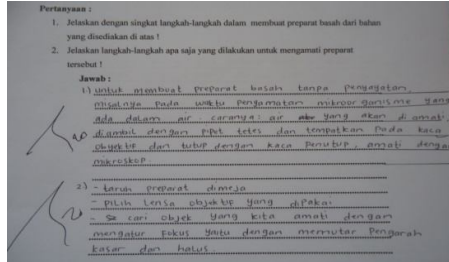 Pertanyaan :
1. Jelaskan dengan singkat langkah-langkah dalam membuat preparat basah dari bahan
yang disediakan di atas !
2. Jelaskan langkah-langkah apa saja yang dilakukan untuk mengamati preparat
tersebut !
Jawab :
1) untuk membuat preparat basah tanpa penyayatan,
misalnya pada waktu pengamatan mikroorganisme yang
ada dalam air. caranya : air yang akan diamati
diambil dengan pipet tetes dan tempatkan pada kaca
objektif dan tutup dengan kaca penutup. amati dengan
mikroskop
2) - taruh preparat dimeja
- pilih lensa objektif yang dipakai
- cari objek yang kita amati dengan
mengatur fokus yaitu dengan memutar pengarah
kasar dan halus.